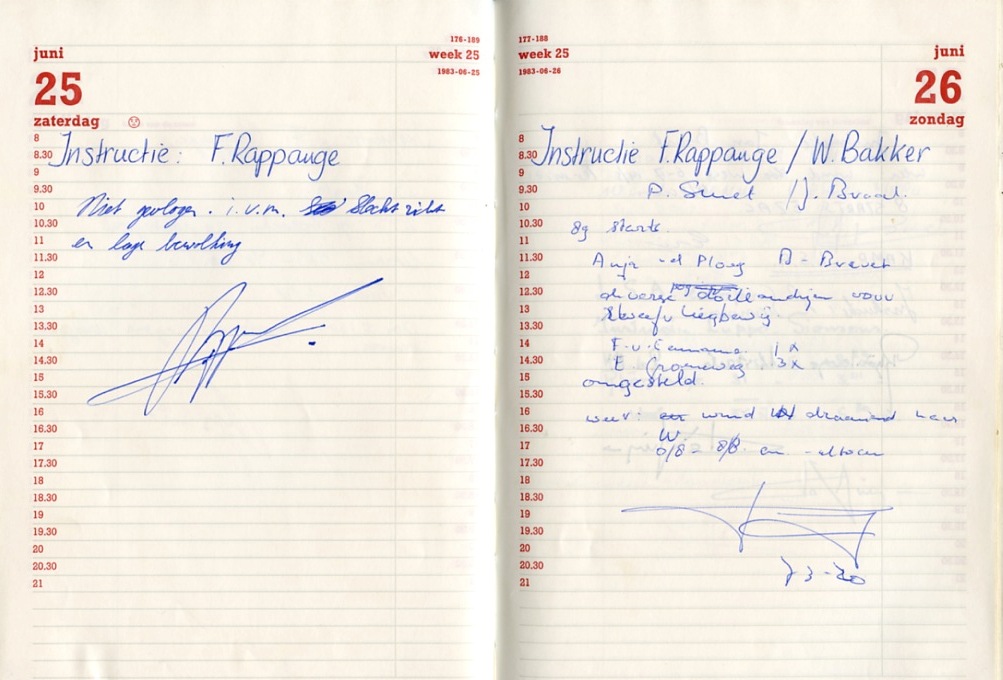 176-189
juni
week 25
1983-06-25
25
zaterdag
8
8.30 Instructie: F. Rappange
9
9.30
10 Niet gevlogen. i.v.m. Slecht zicht
10.30
11 en lage bewolking
11.30
12
12.30
13
13.30
14
14.30
15
15.30
16
16.30
17
17.30
18
18.30
19
19.30
20
20.30
21
177-188
week 25
juni
1983-06-26
26
zondag
8
8.30 Instructie F. Rappange / W. Bakker
9
9.30 P. Smet / J.
10
10.30 starts.
11
11.30 Anja vd Ploeg B-Brevet
12
12.30 diverse voor
13
13.30
14 1x
14.30 E Groeneweg 3x
15 omgesteld.
15.30
16 weer: wind draaiend naar
16.30 W.
17 0/8 - 8/8
17.30
18
18.30
19
19.30
20
20.30
21